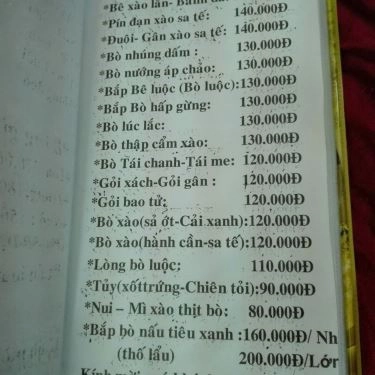 *Bê xào lăn- Bánh
*Pín đạn xào sa tế: 140.000Đ
*Đuôi- Gân xào sa tế: 140.000Đ
*Bò nhúng dấm : 130.000Đ
*Bò nướng áp chảo: 130.000Đ
*Bắp Bê luộc (Bò luộc):130.000Đ
*Bắp Bò hấp gừng: 130.000Đ
*Bò lúc lắc: 130.000Đ
*Bò thập cẩm xào: 130.000Đ
*Bò Tái chanh-Tái me: 120.000Đ
*Gỏi xách-Gỏi gân : 120.000Đ
*Gỏi bao tử: 120.000Đ
*Bò xào(sả ớt-Cải xanh):120.000Đ
*Bò xào(hành cần-sa tế):120.000Đ
*Lòng bò luộc: 110.000Đ
*Tủy(xốttrứng-Chiên tỏi):90.000Đ
*Nui – Mì xào thịt bò: 80.000Đ
*Bắp bò nấu tiêu xạnh :160.000Đ/ Nh
(thố lẩu) 200.000Đ/Lớn